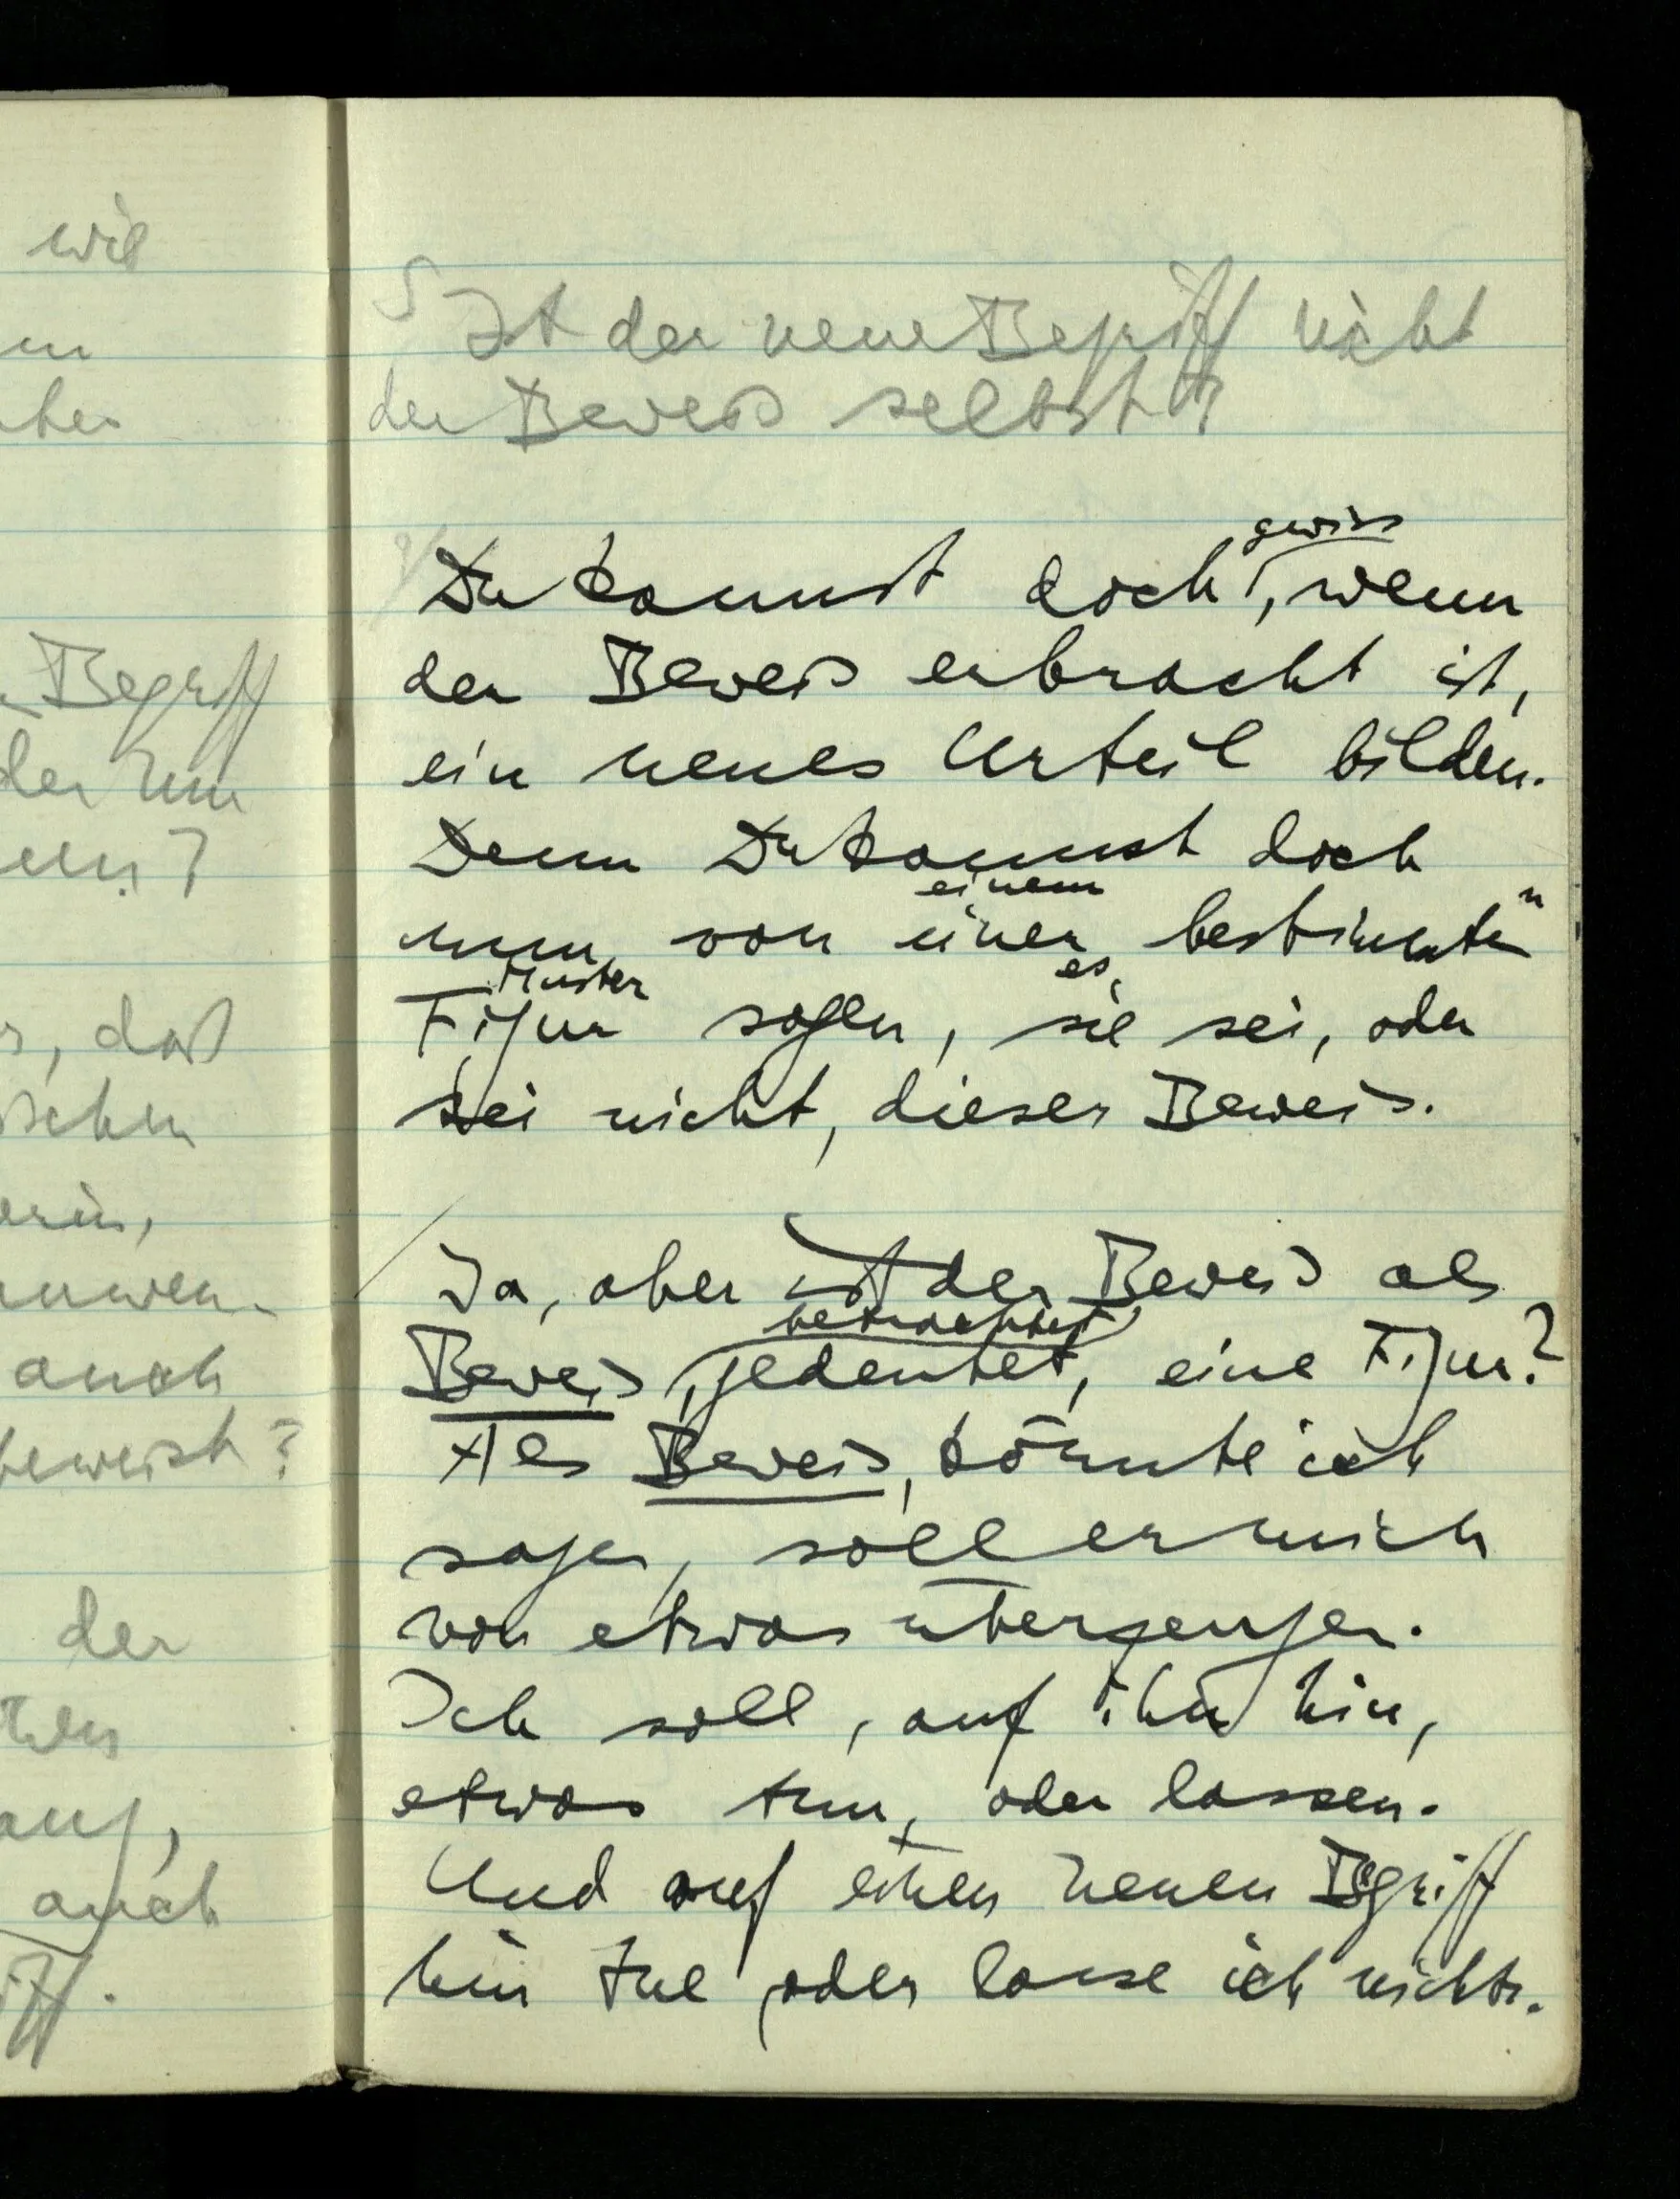 Begriff
auch
beweist?
der
auf,
auch
S Ist der neue Begriff nicht
der Beweis selbst?
gewiss
Du kannst doch, wenn
der Beweis erbracht ist,
ein neues Urteil bilden.
Denn Du kannst doch
einem n
nun von einer bestimmten
Muster es
Figur sagen, sie sei, oder
sei nicht, dieser Beweis.
/ Ja, aber ist der Beweis als
betrachtet
Beweis, gedeutet, eine Figur?
Als Beweis, könnte ich
sagen, soll er mich
von etwas überzeugen.
Ich soll, auf ihn hin,
etwas tun, oder lassen.
Und auf einen neuen Begriff
hin tue oder lasse ich nichts.